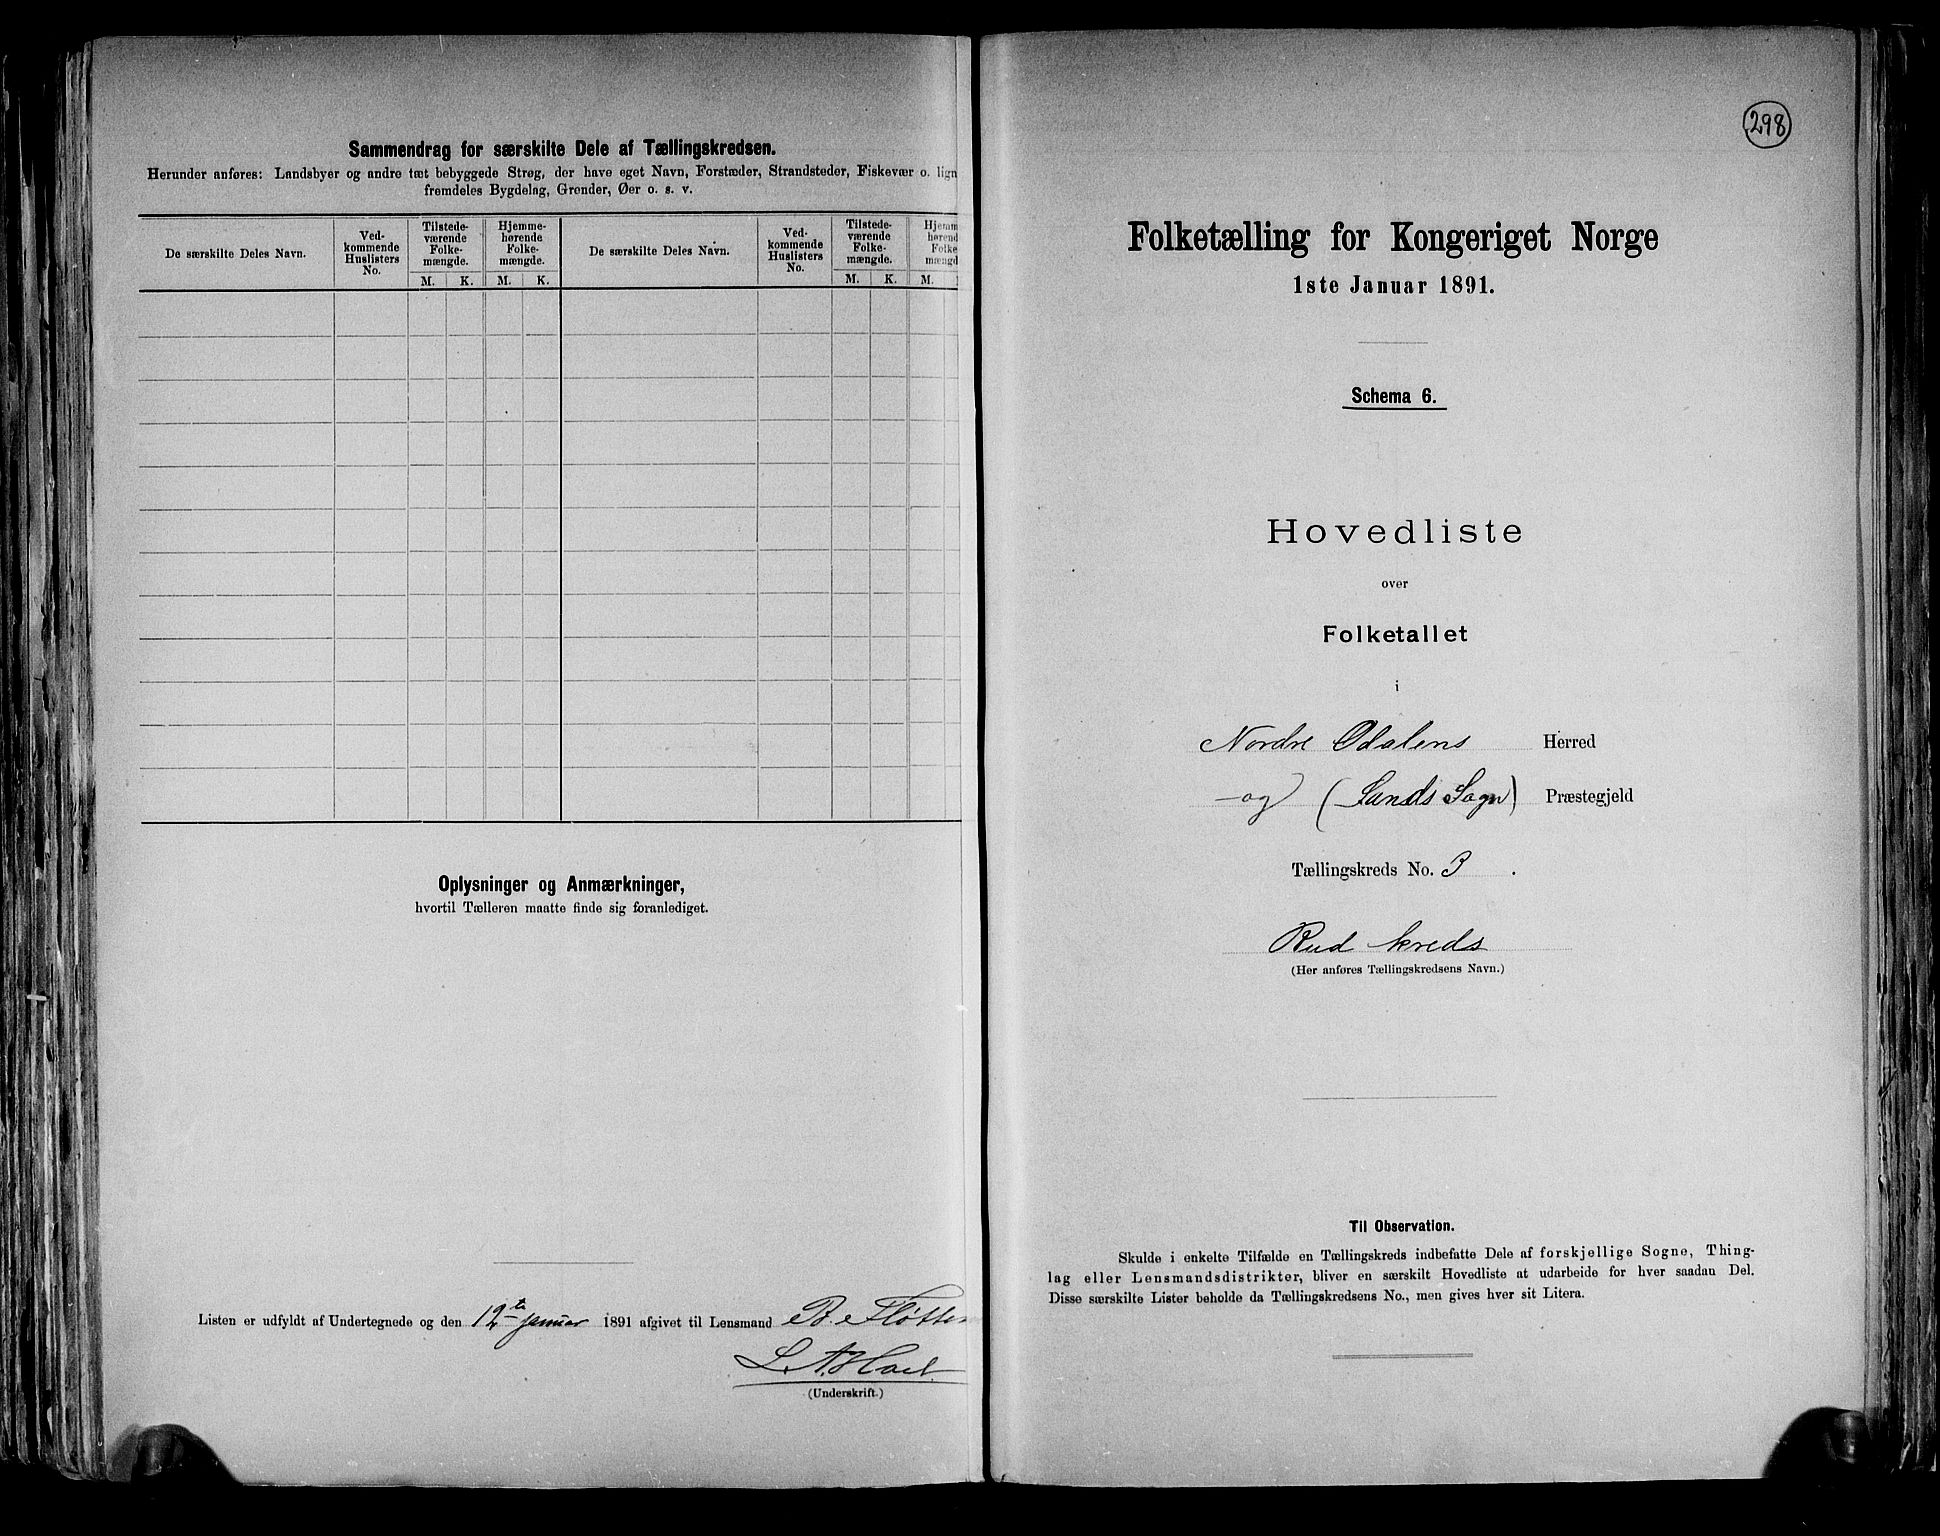 Sammendrag for særskilte Dele af Tællingskredsen.
Herunder anføres: Landsbyer og andre tæt bebyggede Strøg, der have eget Navn, Forstæder, Strandsteder, Fiskevær o. lign
fremdeles Bygdelag, Grender, Øer o. s. v.
De særskilte Deles Navn.
Ved-
kommende
Huslisters
No.
Tilstede-
værende
Folke-
mængde.
Hjemme-
hørende
Folke-
mængde.
De særskilte Deles Navn.
Ved-
kommende
Huslisters
No.
Tilstede-
værende
Folke-
mængde.
Hjemm
hørend
Folke
mængd
M. K. M. K. M. K. M.
Oplysninger og Anmærkninger,
hvortil Tælleren maatte finde sig foranlediget.
Listen er udfyldt af Undertegnede og den 12te januar 1891 afgivet til Lensmand B. Fløtte
L. A. Hoel
(Underskrift.)
298
Folketælling for Kongeriget Norge
1ste Januar 1891.
Schema 6.
Hovedliste
over
Folketallet
i
Nordre Odalens Herred
-og (Sands Sogn) Præstegjeld
Tællingskreds No. 3.
Rud kreds
(Her anføres Tællingskredsens Navn.)
Til Observation.
Skulde i enkelte Tilfælde en Tællingskreds indbefatte Dele af forskjellige Sogne, Thing-
lag eller Lensmandsdistrikter, bliver en særskilt Hovedliste at udarbeide for hver saadan Del.
Disse særskilte Lister beholde da Tællingskredsens No., men gives hver sit Litera.